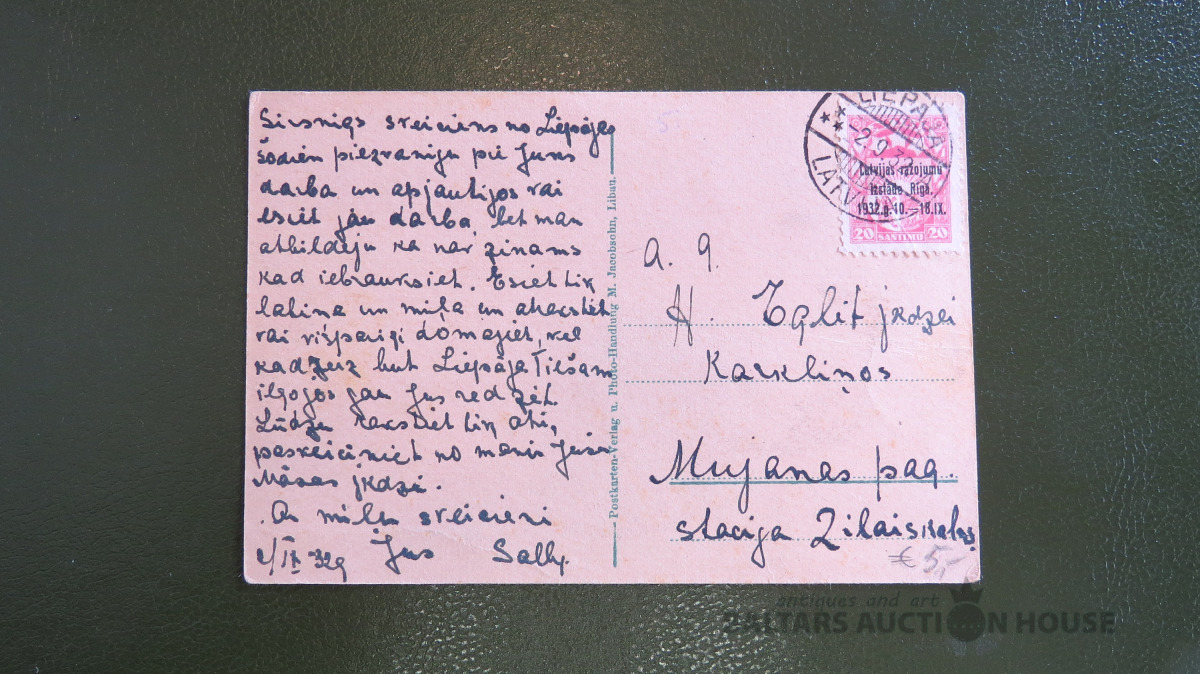 Sirsnigs sveiciens no Liepājas
šodien piezvaniju pie Juns
darba un apjautijos vai
esiet jau darba, bet man
atbildeju ka nav zinams
kad iebrauksiet. Esiet tik
labina un miļa un atrakstiet
vai vispārigi domajiet, vel
kadzeiz but Liepāja Tiešam
ilgojos jau Jus redzēt.
Lūdzu rakstiet tik ātri,
pasveiciniet no manis Jūsu
Māsas jkdzi.
Ar miļu sveicieni
2/IX 32g Jus Sally.
Postkarten-Verlag u. Photo-Handlung M. Jacobsohn, Libau.
LIEPAJA
-2.9.32
LATVIJA
Latvijas ražojumu
izstāde Rīgā.
1932.g.10.—18.IX.
20 SANTIMU 20
A. g.
H. Eglit jkdzei
Karkliņos
Mujanas pag.
stacija Zilaiskalns
€ 5,-
antiques and art
BALTARS AUCTION HOUSE